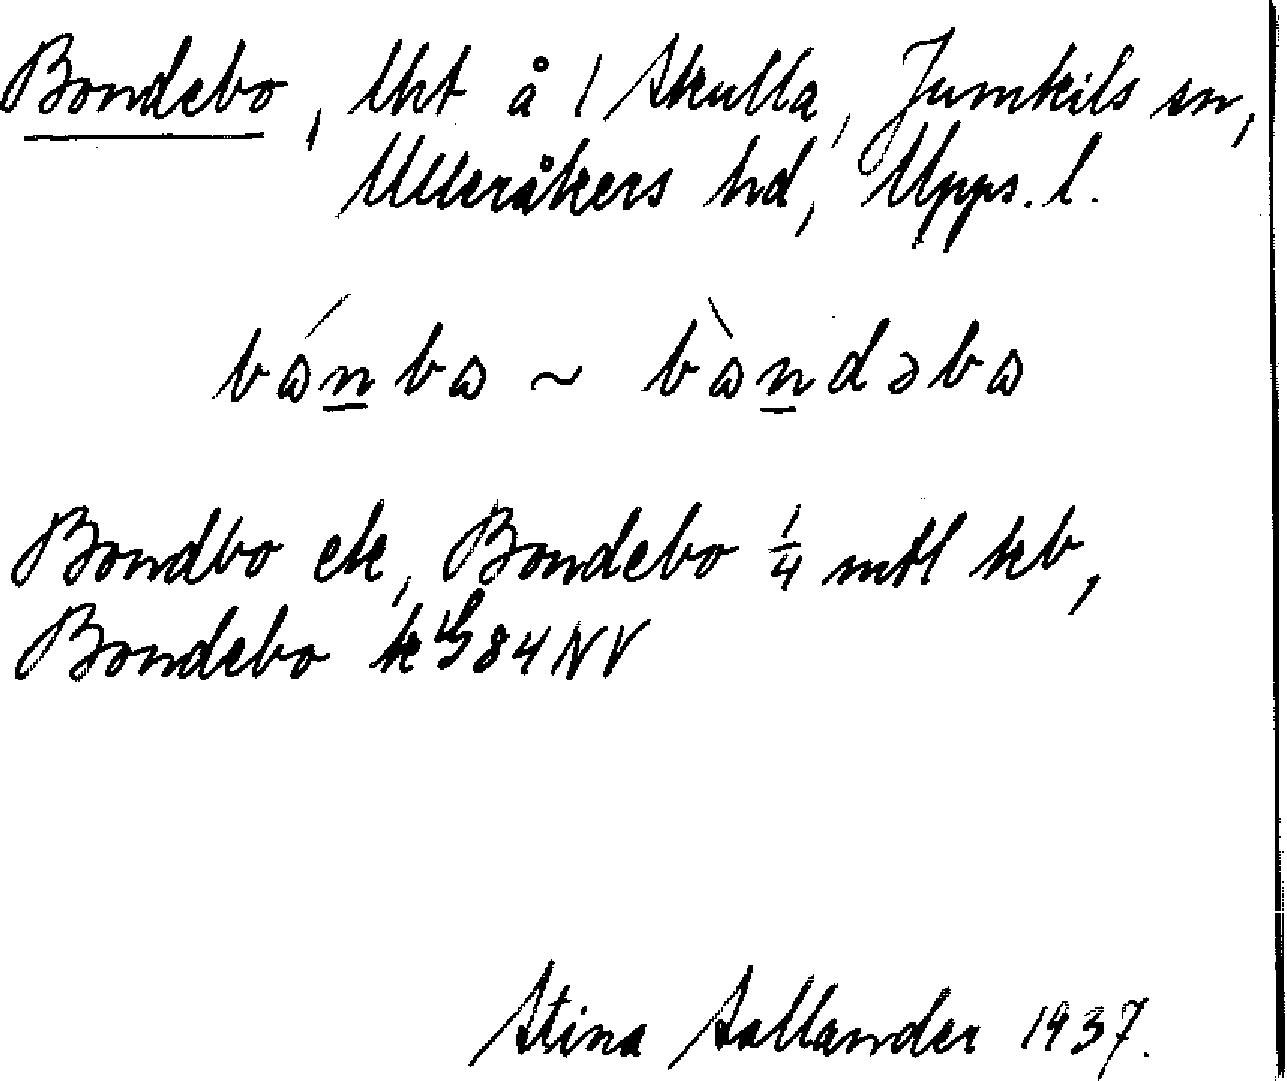 Bondebo, lht å 1 Skulla, Jumkils sn,
Ulleråkers hd, Upps. l.
bɷ́n̲bɷ ~ bɷ̀n̲dəbɷ
Bondbo ek, Bondebo ¼ mtl kb,
Bondebo k 84 NV
Stina Sallander 1937.